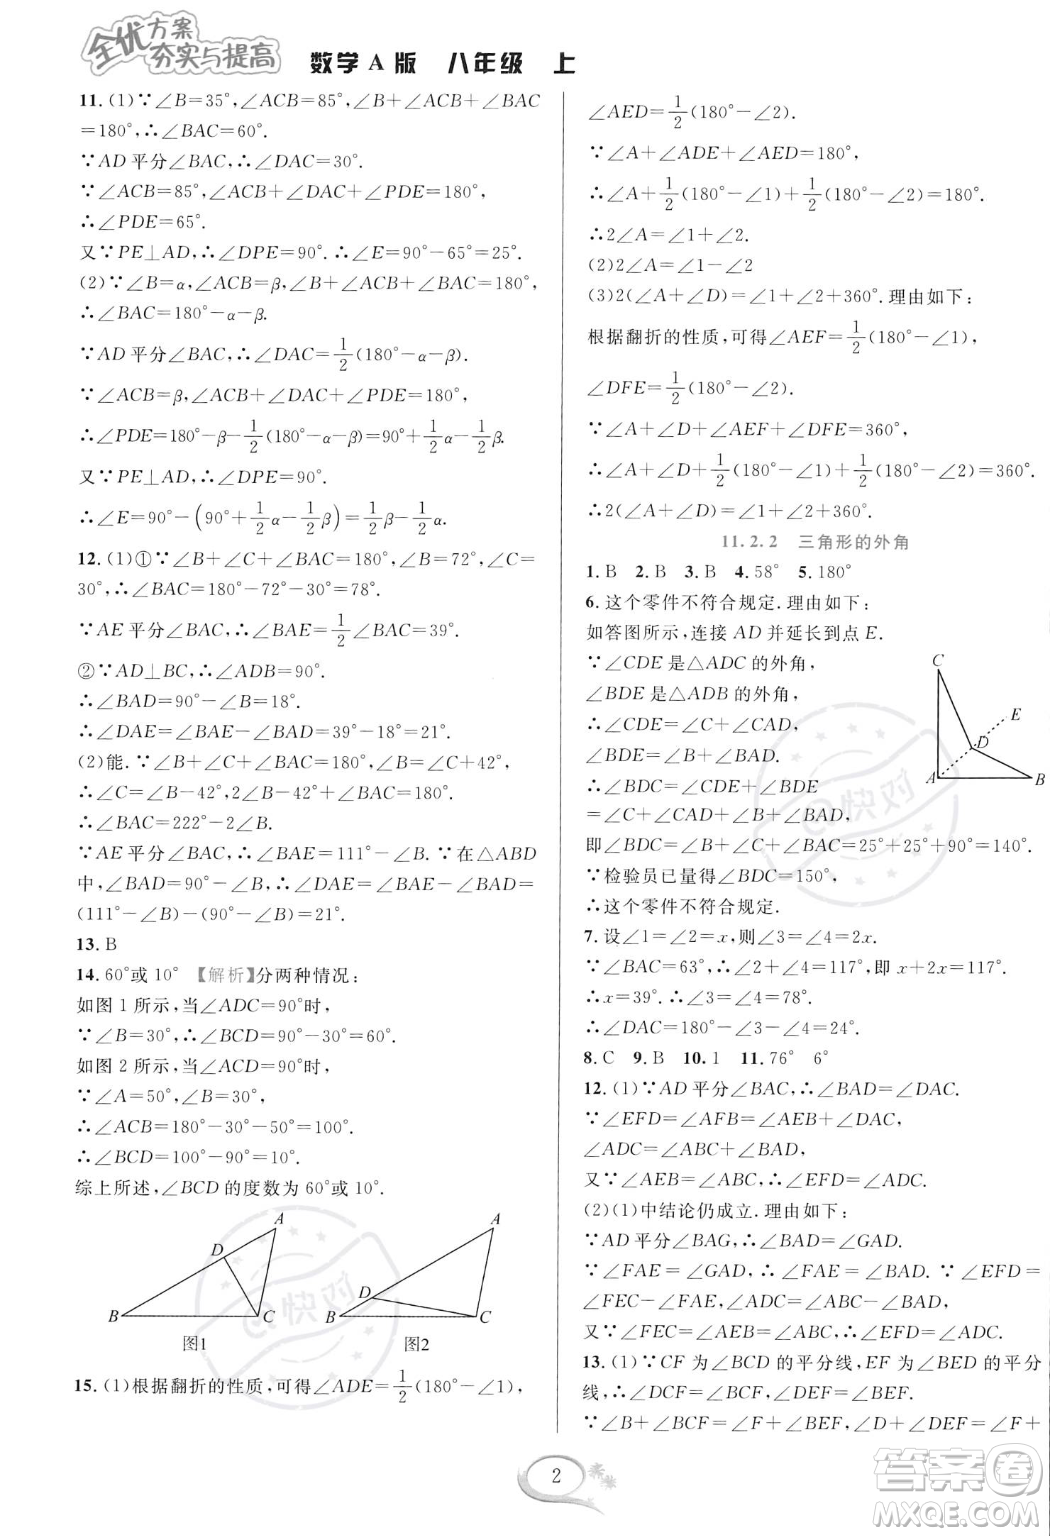 全优方案
夯实与提高
数学A版 八年级 上
11.(1)∵∠B=35°,∠ACB=85°,∠B+∠ACB+∠BAC
=180°,∴∠BAC=60°.
∵AD平分∠BAC,∴∠DAC=30°.
∵∠ACB=85°,∠ACB+∠DAC+∠PDE=180°,
∴∠PDE=65°.
又∵PE⊥AD,∴∠DPE=90°.∴∠E=90°-65°=25°.
(2)∵∠B=α,∠ACB=β,∠B+∠ACB+∠BAC=180°,
∴∠BAC=180°-α-β.
∵AD平分∠BAC,∴∠DAC=1/2(180°-α-β).
∵∠ACB=β,∠ACB+∠DAC+∠PDE=180°,
∴∠PDE=180°-β-1/2(180°-α-β)=90°+1/2α-1/2β.
又∵PE⊥AD,∴∠DPE=90°.
∴∠E=90°-(90°+1/2α-1/2β)=1/2β-1/2α.
12.(1)①∵∠B+∠C+∠BAC=180°,∠B=72°,∠C=
30°,∴∠BAC=180°-72°-30°=78°.
∵AE平分∠BAC,∴∠BAE=1/2∠BAC=39°.
②∵AD⊥BC,∴∠ADB=90°.
∴∠BAD=90°-∠B=18°.
∴∠DAE=∠BAE-∠BAD=39°-18°=21°.
(2)能.∵∠B+∠C+∠BAC=180°,∠B=∠C+42°,
∴∠C=∠B-42°,2∠B+∠BAC-42°=180°.
∴∠BAC=222°-2∠B.
∵AE平分∠BAC,∴∠BAE=111°-∠B.∵在△ABD
中,∠BAD=90°-∠B,∴∠DAE=∠BAE-∠BAD=
(111°-∠B)-(90°-∠B)=21°.
13.B
14.60°或10° 【解析】分两种情况:
如图1所示,当∠ADC=90°时,
∵∠B=30°,∴∠BCD=90°-30°=60°.
如图2所示,当∠ACD=90°时,
∵∠A=50°,∠B=30°,
∴∠ACB=180°-30°-50°=100°.
∴∠BCD=100°-90°=10°.
综上所述,∠BCD的度数为60°或10°.
A
D
B
C
图1
A
D
B
C
图2
15.(1)根据翻折的性质,可得∠ADE=1/2(180°-∠1),
∠AED=1/2(180°-∠2).
∵∠A+∠ADE+∠AED=180°,
∴∠A+1/2(180°-∠1)+1/2(180°-∠2)=180°.
∴2∠A=∠1+∠2.
(2)2∠A=∠2-∠1
(3)2(∠A+∠D)=∠1+∠2+360°.理由如下:
根据翻折的性质,可得∠AEF=1/2(180°-∠1),
∠DFE=1/2(180°-∠2).
∵∠A+∠D+∠AEF+∠DFE=360°,
∴∠A+∠D+1/2(180°-∠1)+1/2(180°-∠2)=360°.
∴2(∠A+∠D)=∠1+∠2+360°.
11.2.2 三角形的外角
1.B 2.B 3.B 4.58° 5.180°
6.这个零件不符合规定.理由如下:
如答图所示,连接AD并延长到点E.
∵∠CDE是△ADC的外角,
∠BDE是△ADB的外角,
∴∠CDE=∠C+∠CAD,
∠BDE=∠B+∠BAD.
∴∠BDC=∠CDE+∠BDE
=∠C+∠CAD+∠B+∠BAD,
即∠BDC=∠B+∠C+∠BAC=25°+25°+90°=140°.
∵检验员已量得∠BDC=150°,
∴这个零件不符合规定.
C
E
D
A
B
7.设∠1=∠2=x,则∠3=∠4=2x.
∵∠BAC=63°,∴∠2+∠4=117°,即x+2x=117°.
∴x=39°.∴∠3=∠4=78°.
∴∠DAC=180°-∠3-∠4=24°.
8.C 9.B 10.1 11.76° 6°
12.(1)∵AD平分∠BAC,∴∠BAD=∠DAC.
∵∠EFD=∠AFB=∠AEB+∠DAC,
∠ADC=∠ABC+∠BAD,
又∵∠AEB=∠ABC,∴∠EFD=∠ADC.
(2)(1)中结论仍成立.理由如下:
∵AD平分∠BAG,∴∠BAD=∠GAD.
∵∠FAE=∠GAD,∴∠FAE=∠BAD.∵∠EFD=
∠FEC-∠FAE,∠ADC=∠ABC-∠BAD,
又∵∠FEC=∠ABC,∴∠EFD=∠ADC.
13.(1)∵CF为∠BCD的平分线,EF为∠BED的平分
线,∴∠BCF=∠DCF,∠DEF=∠BEF.
∵∠B+∠BCF=∠F+∠BEF,∠D+∠DEF=∠F+
2
@快对
@快对
答案卷
MXQE.COM